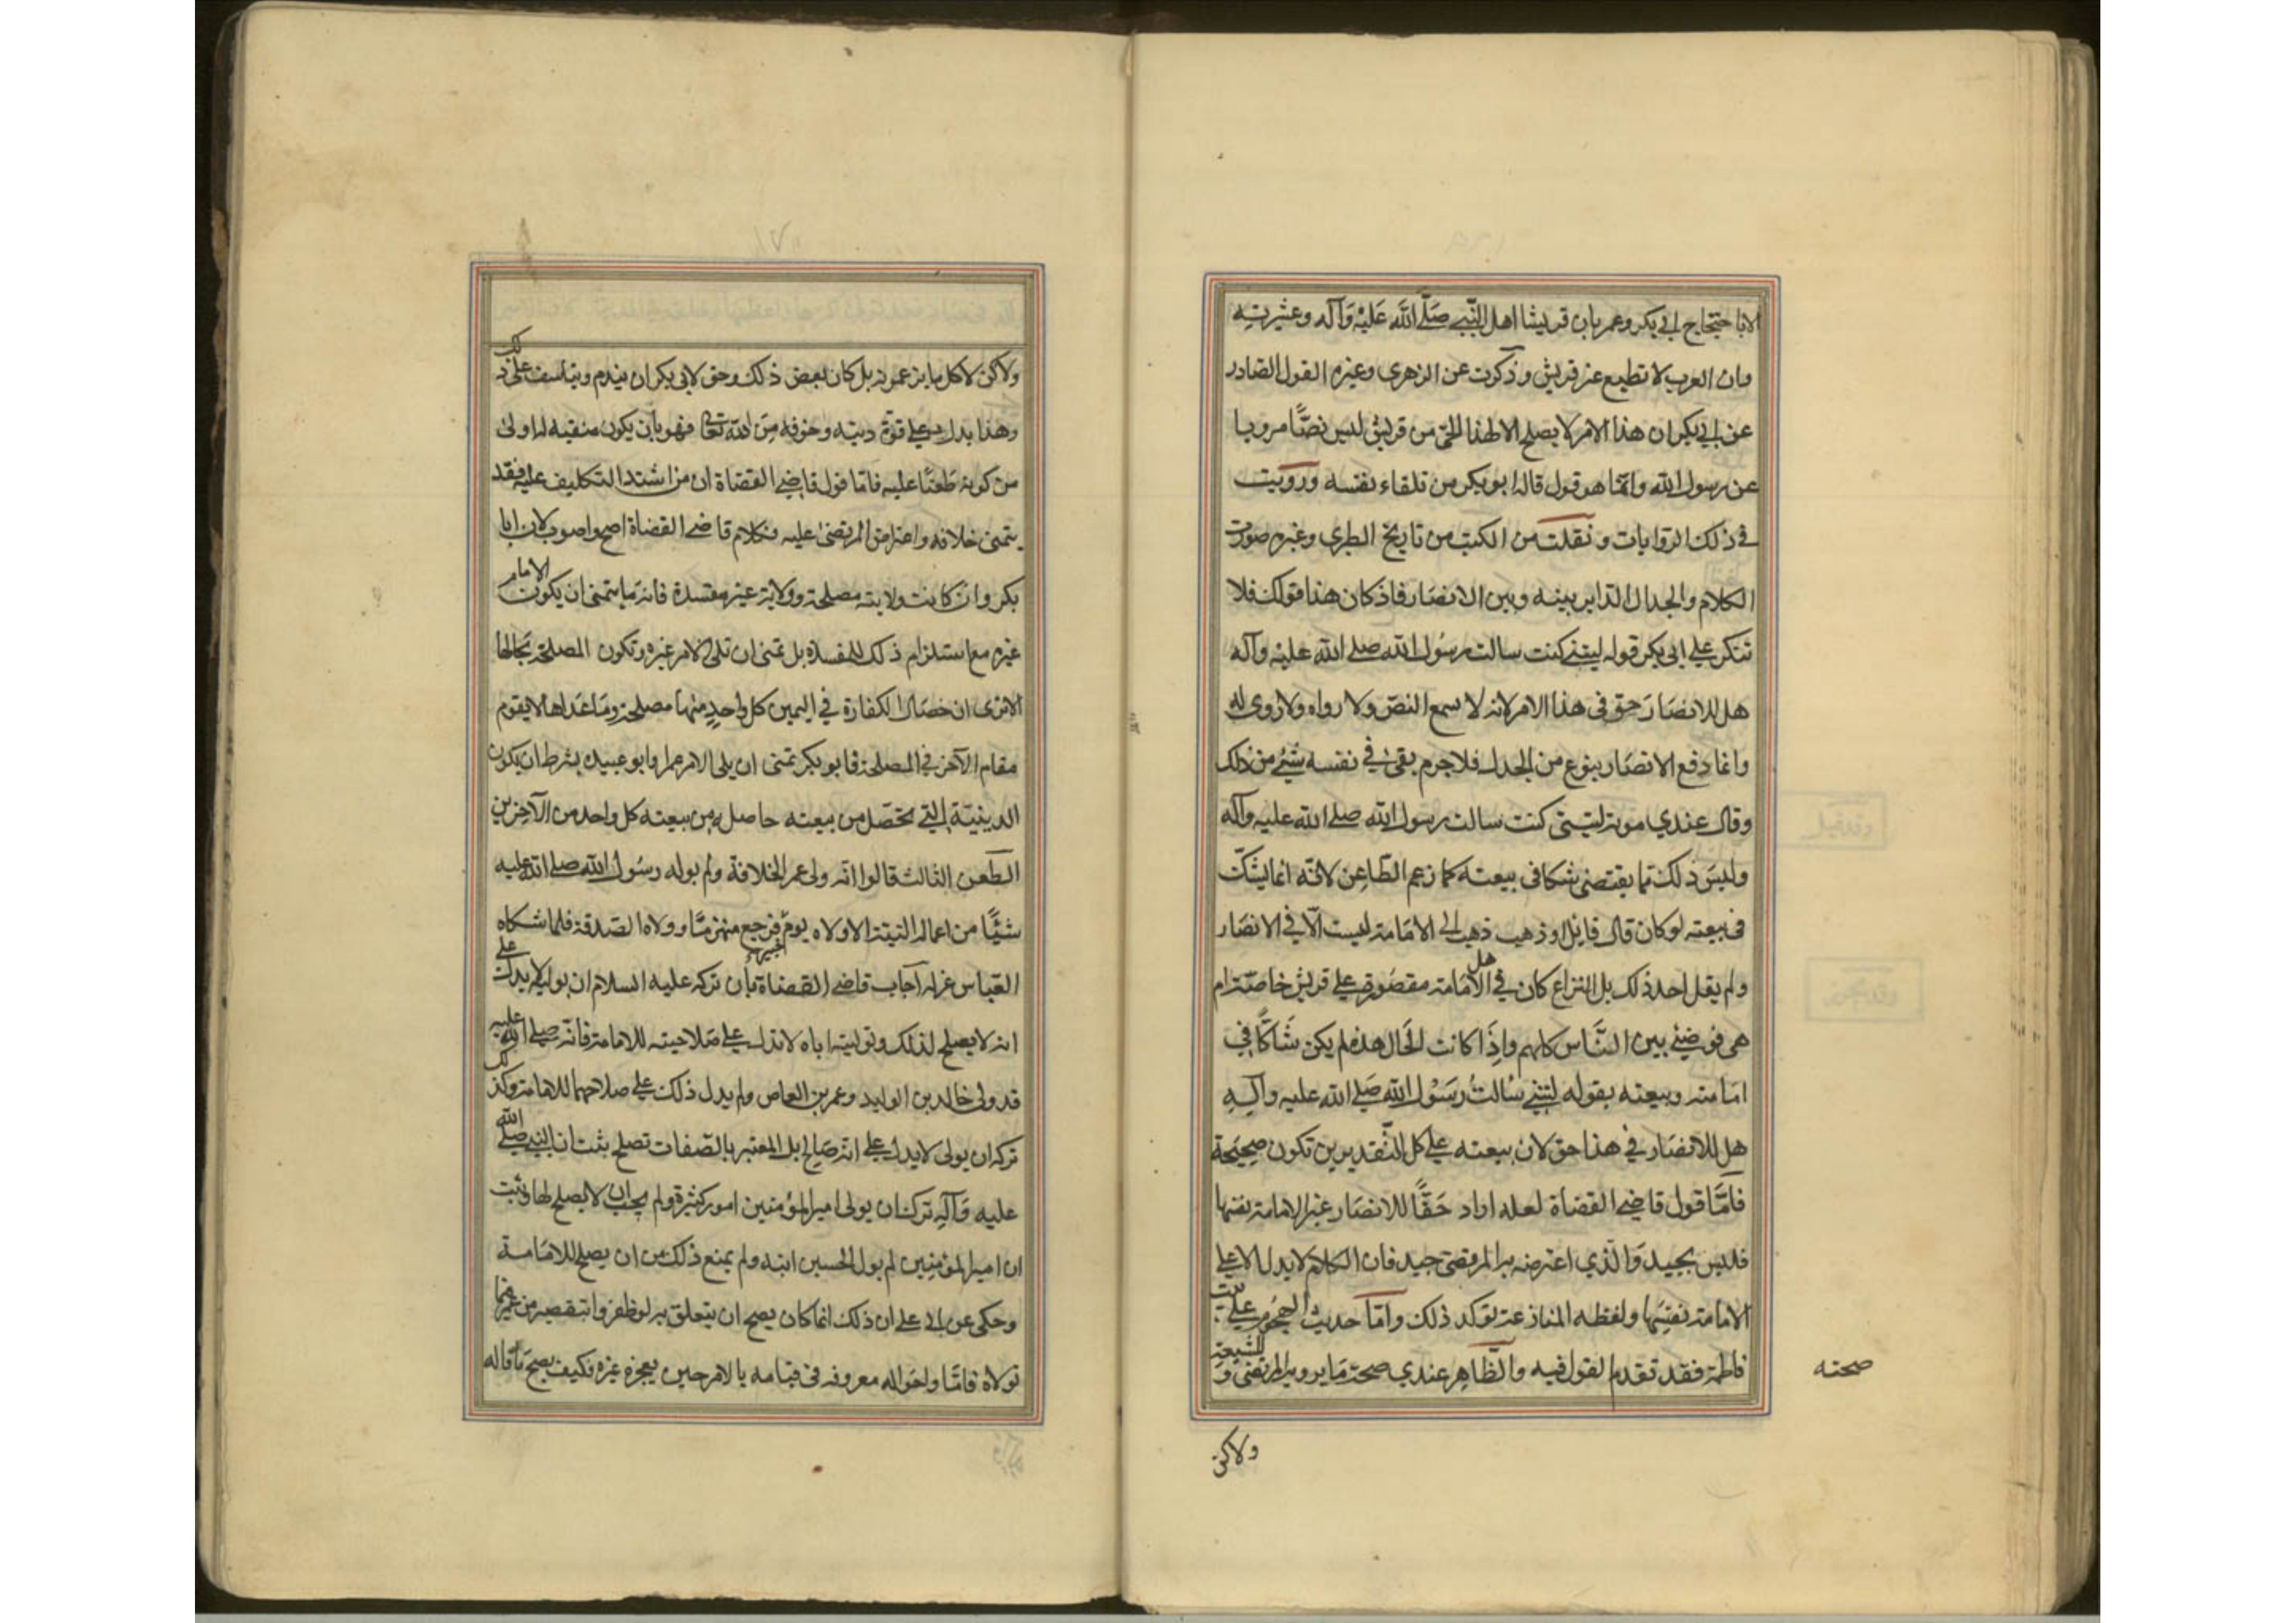 الا باحتجاج ابي بكر وعمر بان قريشا اهل النّبي صَلَّى اللَّه عَلَيْه وَآله وعشيرته
وان العرب لا تطيع غير قريش وذكرت عن الزهري وغيره القول الصادر
عن ابي بكر ان هذا الامر لا يصلح الا لهذا الحيّ من قريش ليس نصًّا مرويا
عن رسول الله وانّما هو قول قاله ابو بكر من تلقاء نفسه ورويت
في ذلك الروايات ونقلت من الكتب من تاريخ الطبري وغيره صورت
الكلام والجدال الداير بينه وبين الانصار فاذ كان هذا قولك فلا
تنكر علي ابى بكر قوله ليتني كنت سالت رسُول الله صلى الله عليه وآله
هل للانصَار حق فى هذا الامر لانه لا سمع النص ولا رواه ولا روى له
وانما دفع الانصَار بنوع من الجدل فلا جرم بقى في نفسه شيْ من ذلك
وقال عندي موته ليتنى كنت سالت رسول الله صلى الله عليه وآله
وليسَ ذلك مما يقتضى شكا فى بيعته كما زعم الطّاعِن لانّه انما يشكّ
فى بيعته لو كان قال قائل او ذهب ذهب الى الامَامة ليست الّا في الانصَار
ولم يقل احد ذلك بل النزاع كان في هل الامَامة مقصُورة على قريش خاصّة ام
هى فوضىٰ بين النَّاس كلهم وإذَا كانت الحَال هذه لم يكن شَاكًّا في
امَامته وبيعته بقوله ليتني سَالتُ رسَوْل الله صَلى الله عليه وآلِهِ
هل للانصَار في هذا حق لان بيعته على كل التّقديرين تكون صحيحة
فامَّا قول قاضي القضاة لعله اراد حَقًّا للانصَار غير الامامة نفسها
فليس بجيد وَالّذي اعترضه به المرتضى جيد فان الكلام لا يدل الا على
الامامة نفسِهَا ولفظه المنازعة توكد ذلك وامّا حديث الهجوم على بيت
فاطمة فقد تقدم القول فيه والظّاهِر عندي صحة مَا يرويه المرتضى و الشيعة
صحته
ولاكن
ولاكن لا كل ما يزعمونه بل كان بعض ذلك وحق لابى بكر ان يندم ويتاسف على ذلك
وهذا يدل على قوّة دينه وخوفه مِنَ الله تعالى فهو بأن يكون منقبه له اولى
من كونه طَعنًا عليه فامّا قول قاضي القضاة ان من اشتد التكليف عليه فقد
يتمنى خلافه واعتراض المرتضى عليه فكلام قاضى القضاة اصح واصوب لان ابا
بكر وان كانت ولايته مصلحة وولاية غيره مفسدة فانه ما يتمنى ان يكون الامام
غيره مع استلزام ذلك للمفسدة بل تمنى ان تلى الامر غيره وتكون المصلحة بحالها
الا ترى ان خصَال الكفارة في اليمين كل واحدٍ منها مصلحة ومَا عَداها لا يقوم
مقام الآخر في المصلحة فابو بكر تمنى ان يلى الامر عمر او ابو عبيده بشرط ان يكون
الدينيّة التي تحصَل من بيعته حاصله من بيعته كل واحد من الآخرين
الطّعن الثالث قالوا انّه ولى عمر الخلافة ولم يوله رسُول الله صلى الله عليه
شيًّا من اعماله البتة الا ولاه يوم خيبر فرجع منهزمًا وولاه الصّدقة فلما شكاه
العّباس عزله أجاب قاضي القضاة بأن تركه عليه السلام ان يوليه لا يدل على
انه لا يصلح لذلك وتوليته اياه لا تدل على صَلاحيته للامامة فانّه صلى الله عليه
قد ولى خالد بن الوليد وعمر بن العاص ولم يدل ذلك على صلاحهما للامامة وكذلك
تركه ان يولى لا يدل على انه صَالح بل المعتبر بالصّفات تصلح بثت ان النبي صلى الله
عليه وَآلِه ترك ان يولى امير المؤمنين امور كثيرة ولم يجب ان لا يصلح لها وثبت
ان امير المؤمنِين لم يول الحسين ابنه ولم يمنع ذلك من ان يصلح للامَامة
وحكى عن ابى على ان ذلك انما كان يصح ان يتعلق به لو ظفروا بتقصير من عمر فيما
تولاه فامّا واحَواله معروفه فى قيامه بالامر حين يعجز غيره فكيف يصح مَا قاله